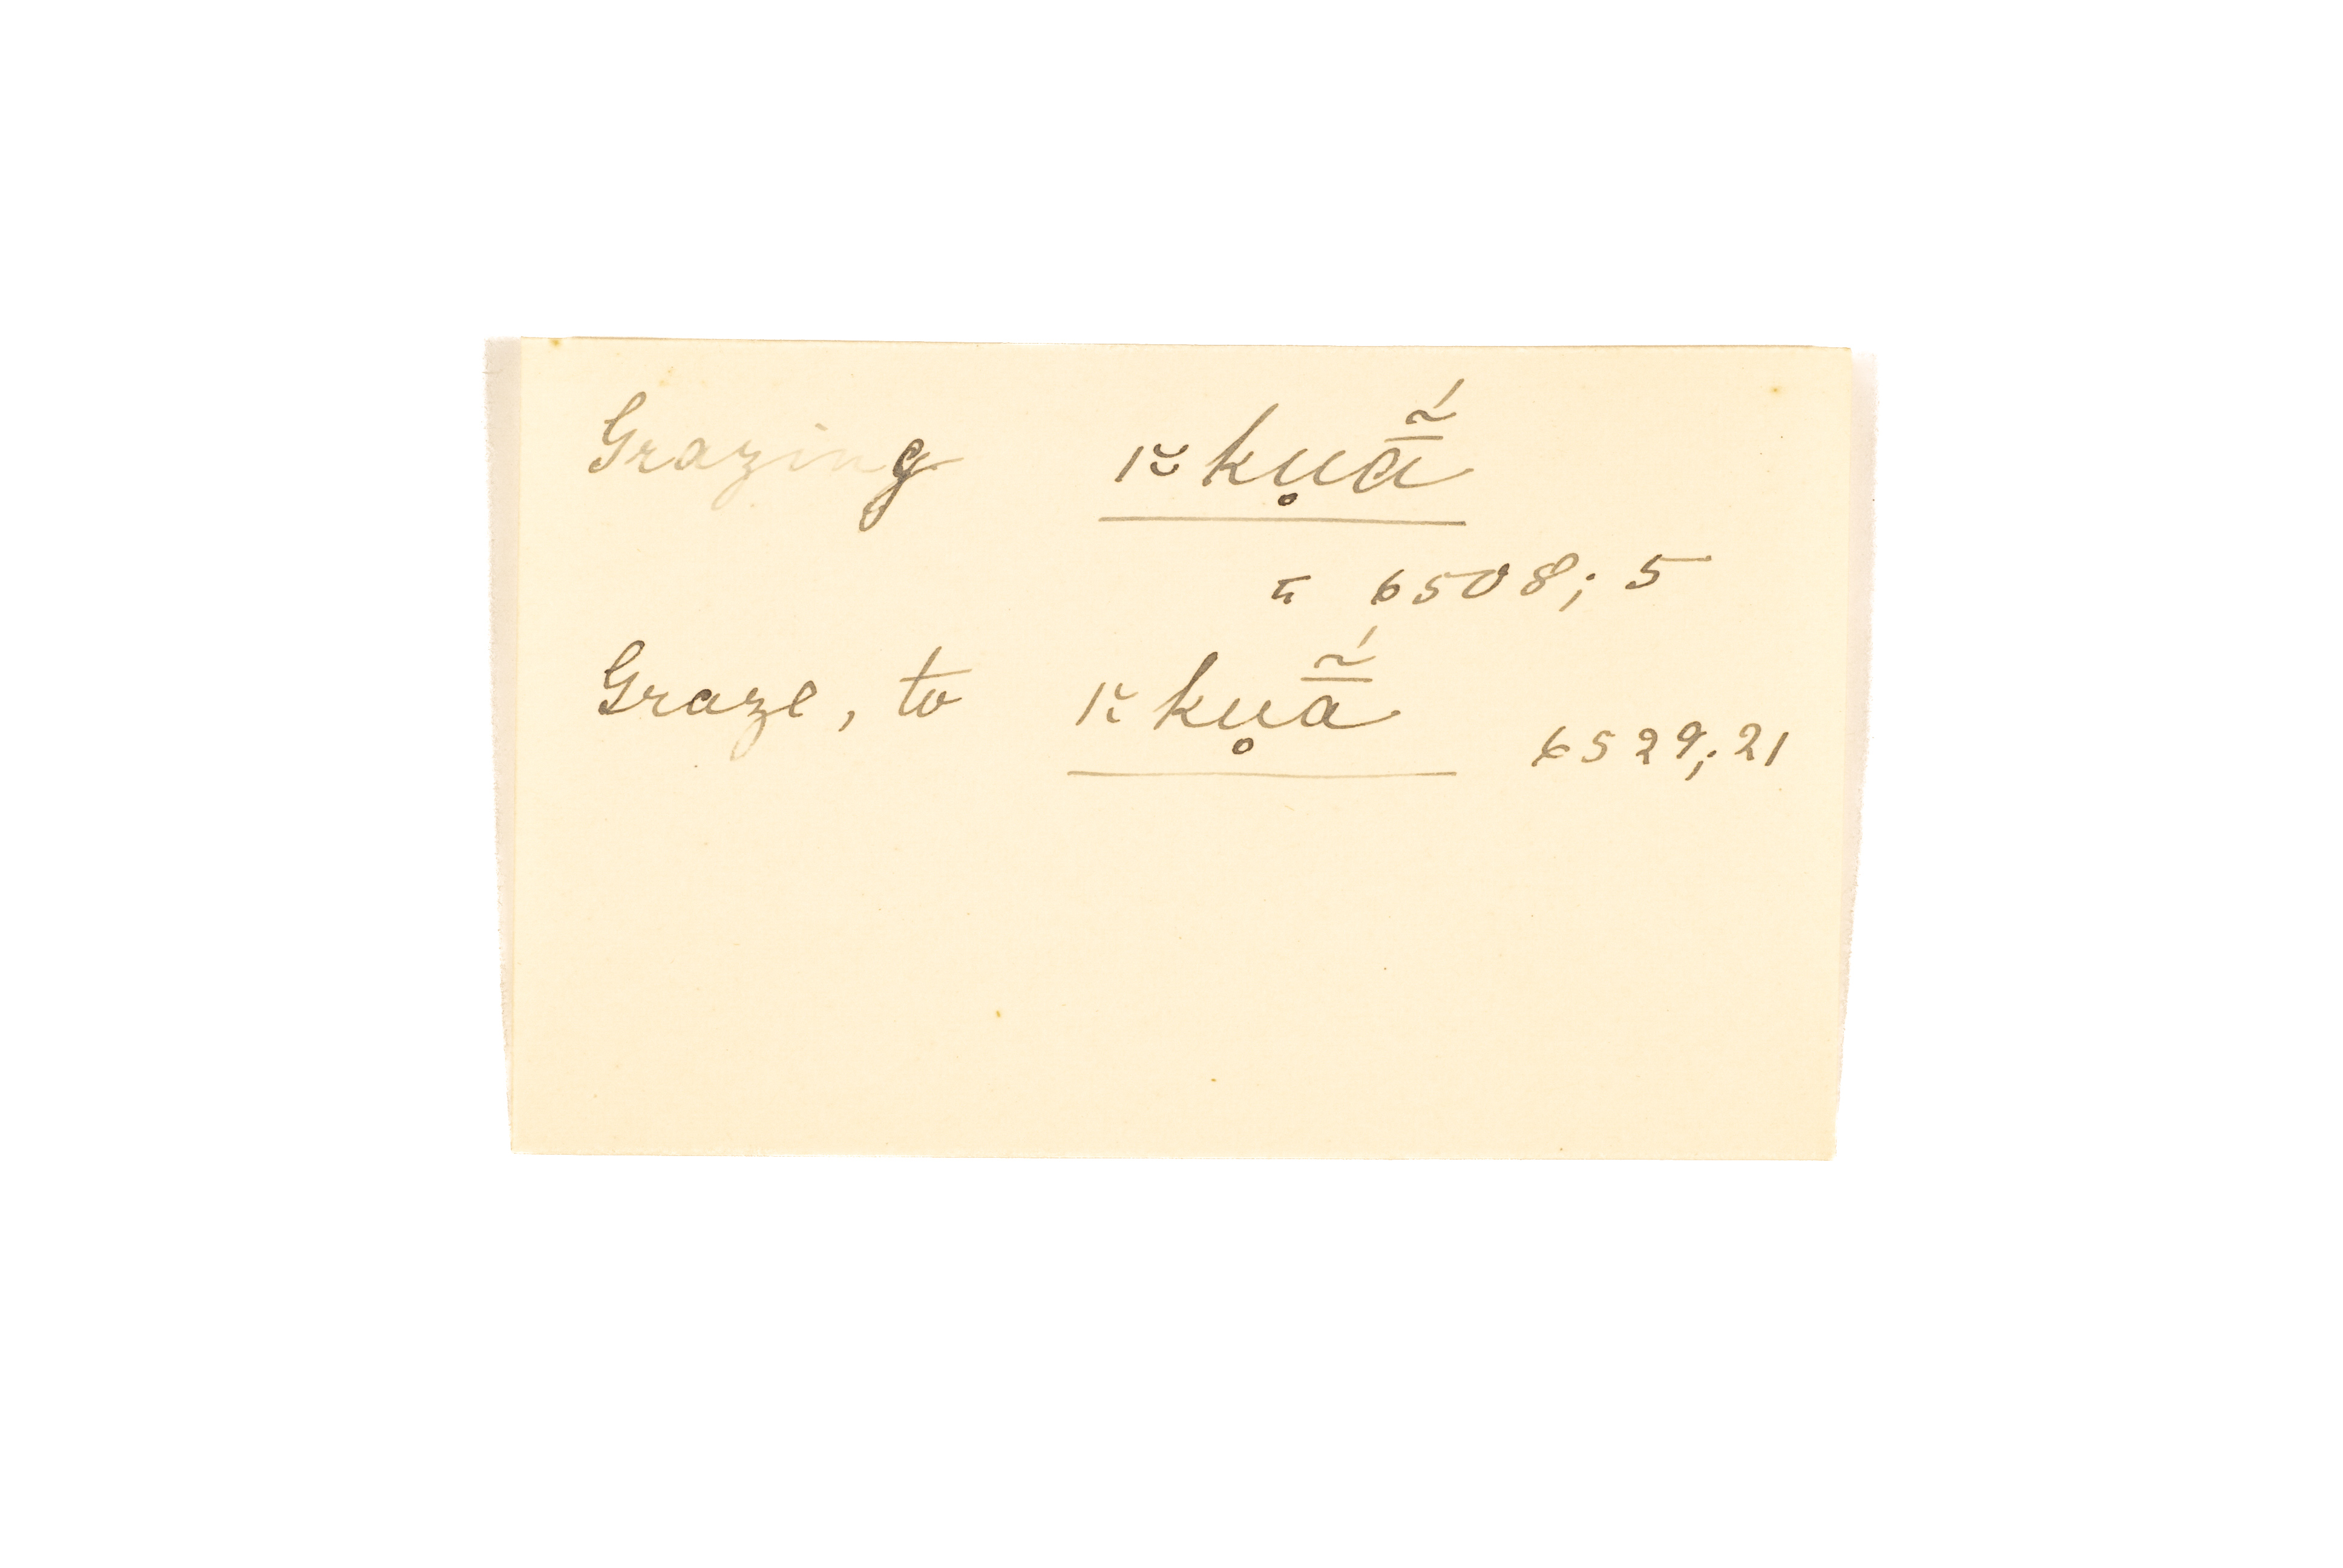 Grazing ǀ˜̆kṷā̰̃́
ᴨ 6508; 5
Graze, to ǀ˘kṷā̃́ 6529; 21